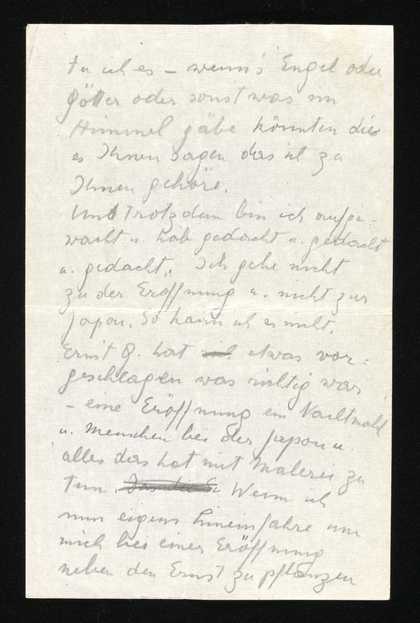 tu ich es – wenn's Engel oder
Götter oder sonst was im
Himmel gäbe könnten die
es Ihnen sagen dass ich zu
Ihnen gehöre.
Und Trotzdem bin ich aufge-
wacht u. hab gedacht u. gedacht
u. gedacht, Ich gehe nicht
zu der Eröffnung u. nicht zur
Japon. So kann ich es nicht.
Ernst Q. hat etwas vor-
geschlagen was richtig war
– eine Eröffnung ein Nachtmahl
u. Menschen bei der Japon u.
alles das hat mit Malerei zu
tun. Wenn ich
nun eigens hineinfahre um
mich bei einer Eröffnung
neben den Ernst zu pflanzen